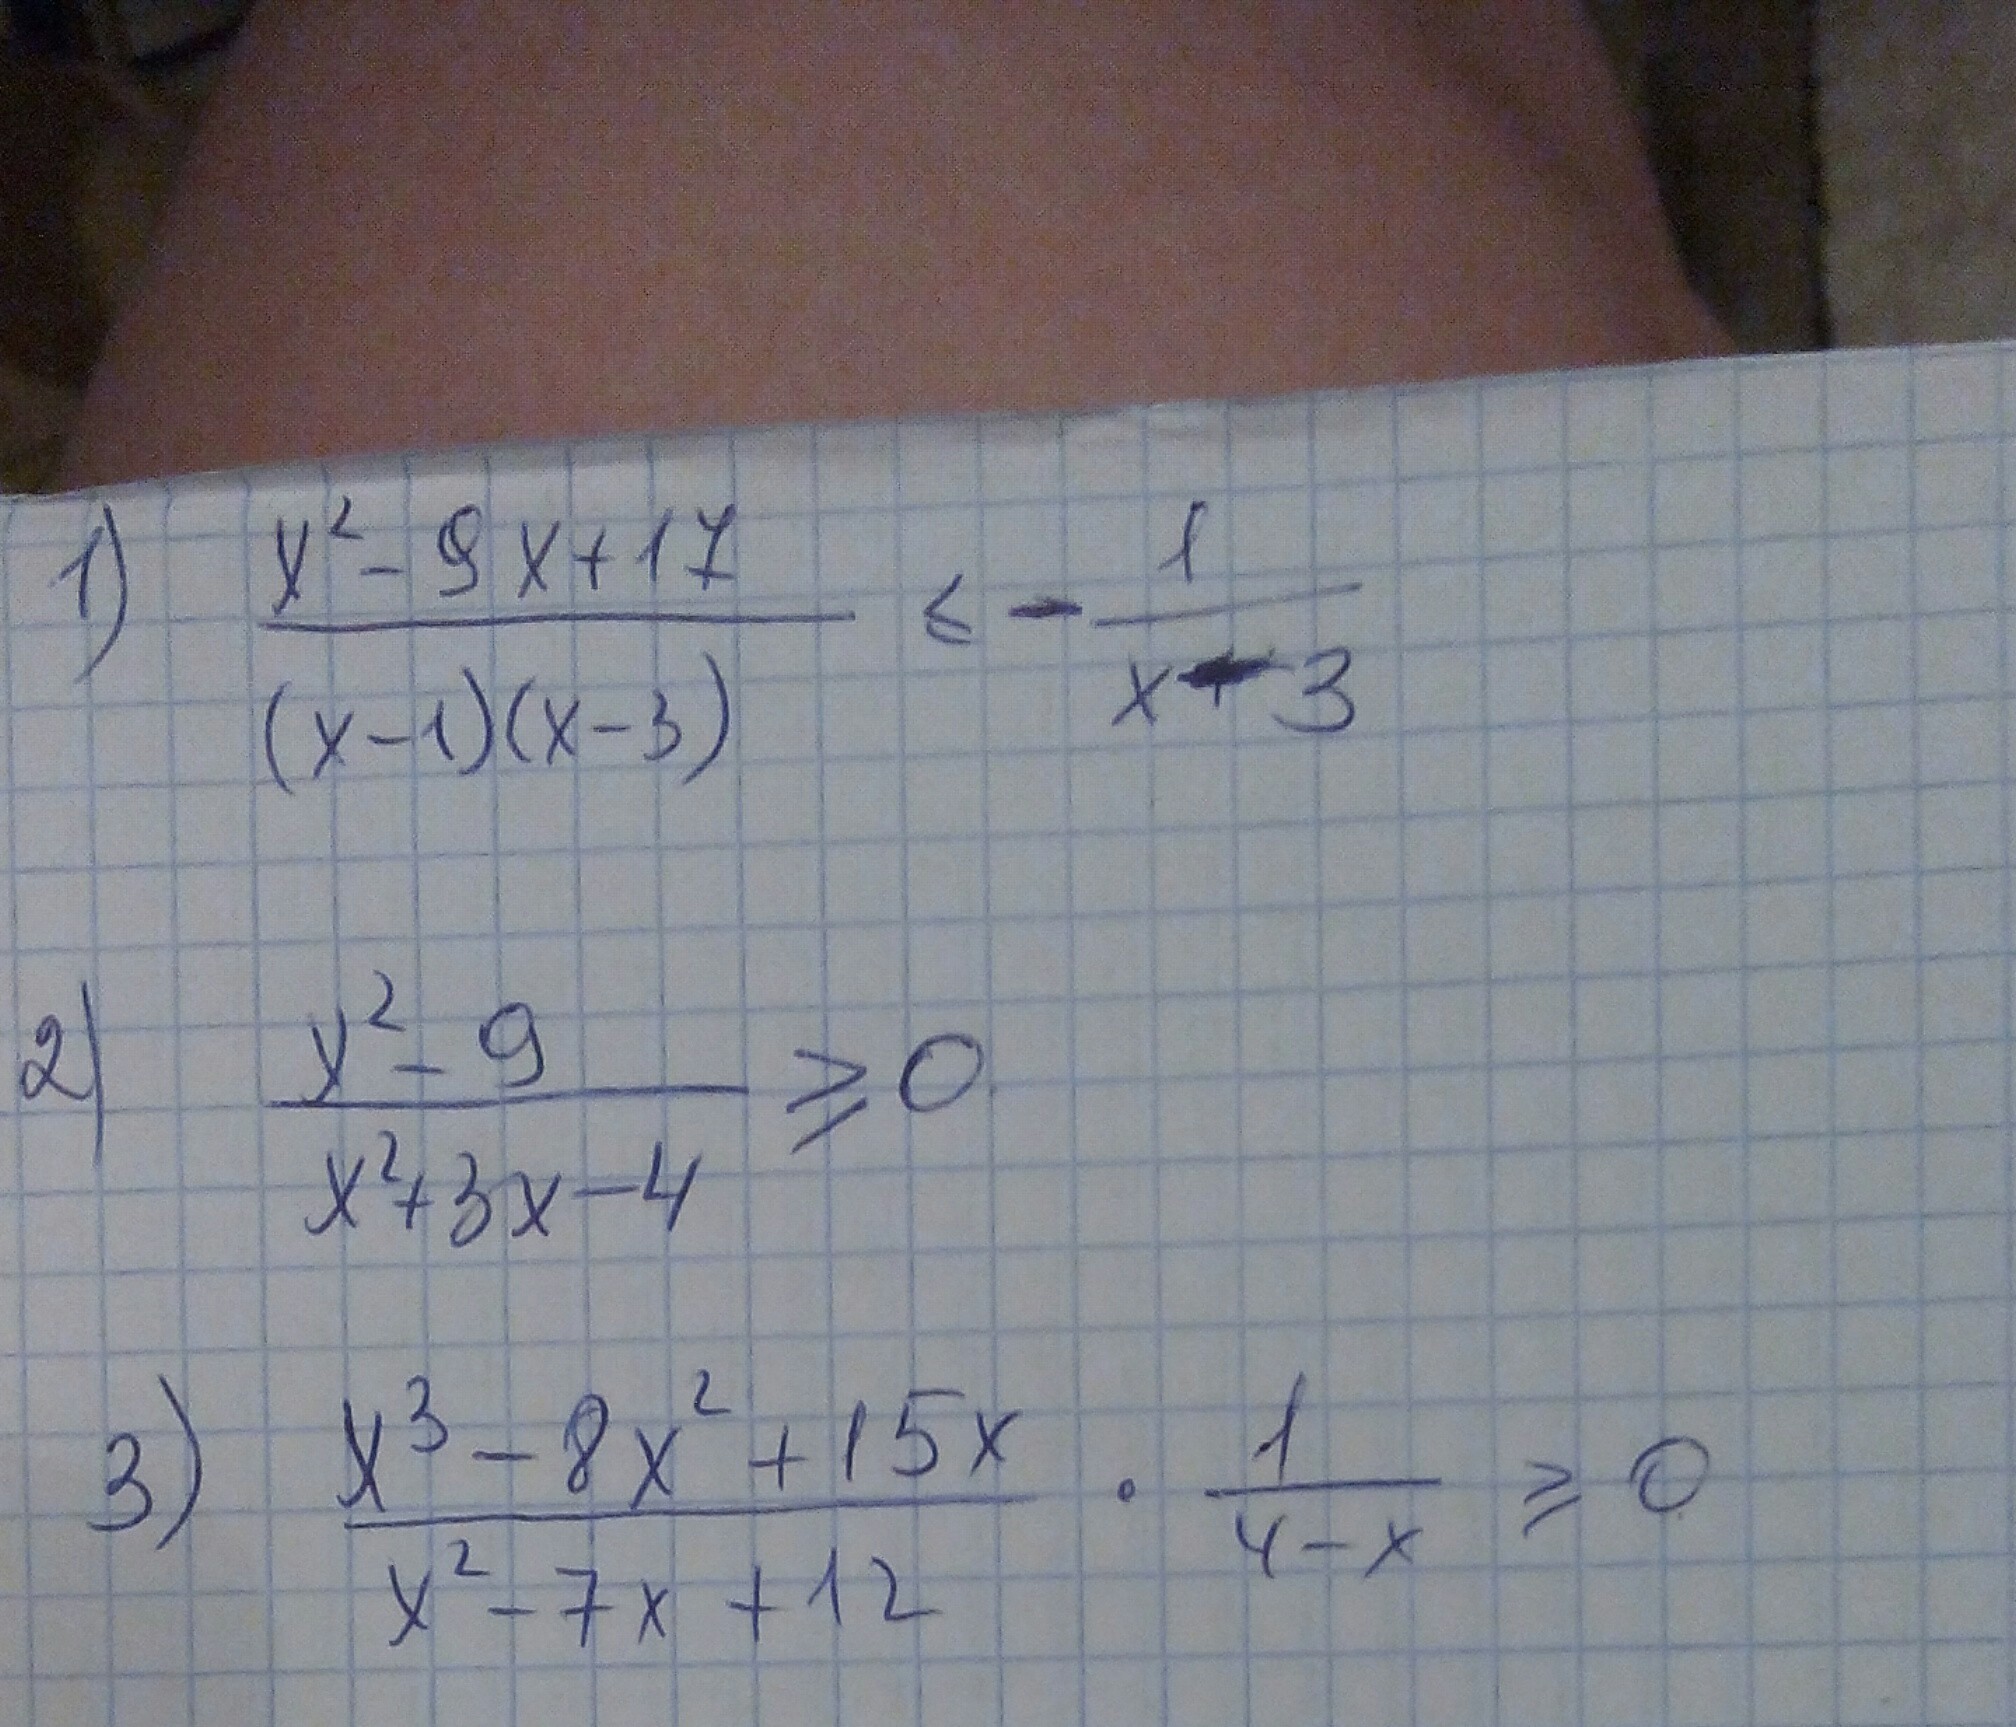 1) (x² - 9x + 17) / ((x-1)(x-3)) ≤ - 1 / (x - 3)
2) (x² - 9) / (x² + 3x - 4) ≥ 0
3) (x³ - 8x² + 15x) / (x² - 7x + 12) · 1 / (4 - x) ≥ 0